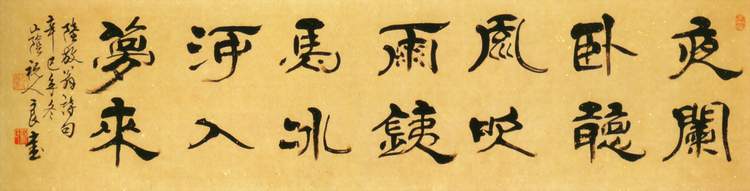 夜闌
卧聽
風吹
雨銕
馬冰
河入
夢來
陸放翁詩句
辛巳年冬
山陰祝人良書